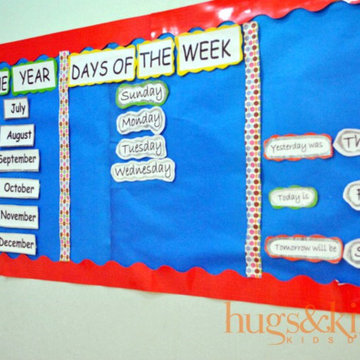 YEAR
DAYS OF THE WEEK
July
August
September
October
November
December
Sunday
Monday
Tuesday
Wednesday
Yesterday was
Today is
Tomorrow will be
hugs&ki
KIDS